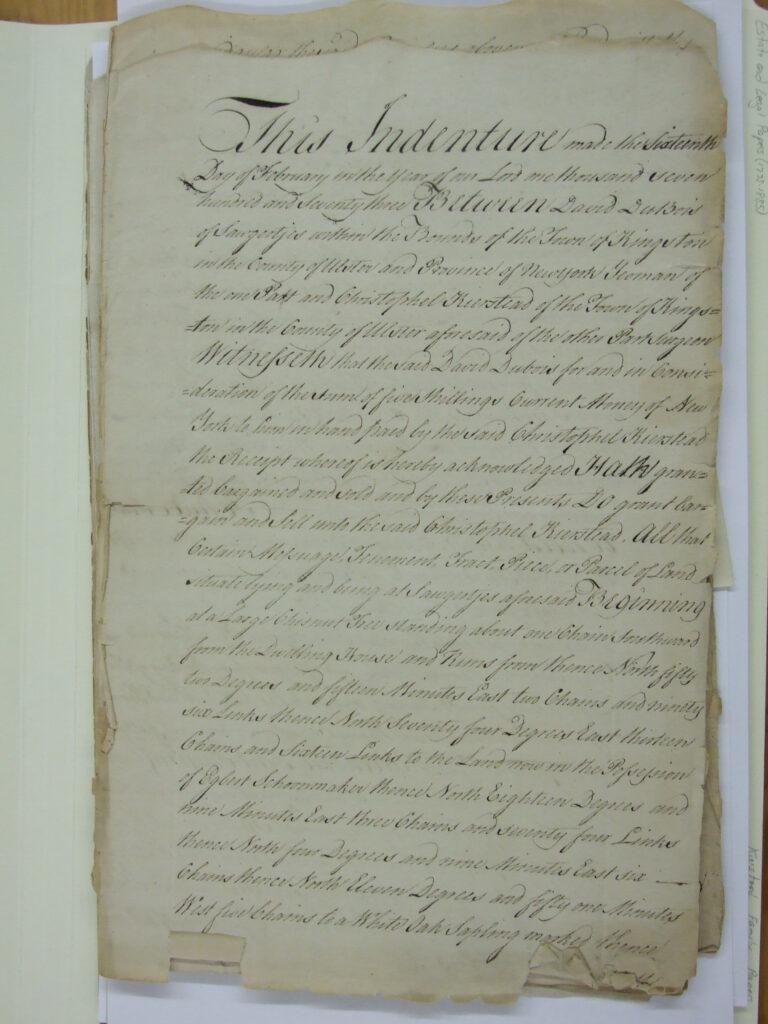 This Indenture made the Sixteenth
Day of February in the Year of our Lord one thousand seven
hundred and Seventy three Between David DuBois
of Sawgertjes within the Bounds of the Town of Kingston
in the County of Ulster and Province of New York Yeoman of
the one Part and Christophel Kierstead of the Town of Kings=
=ton in the County of Ulster aforesaid of the other Part Surgeon
Witnesseth that the said David Dubois for and in Consi=
=deration of the sum of five Shillings Current Money of New
York to him in hand paid by the said Christophel Kierstead
the Receipt whereof is hereby acknowledged Hath gran=
=ted bargained and sold and by these Presents Do grant bar=
=gain and Sell unto the said Christophel Kierstead. All that
Certain Messuage, Tenement, Tract, Piece, or Parcel of Land
situate lying and being at Sawgertjes aforesaid Beginning
at a Large Chisnut Tree standing about one Chain Southward
from the Dwelling House and Runs from thence North fifty
two Degrees and fifteen Minutes East two Chains and ninety
six Links thence North Seventy four Degrees East thirteen
Chains and Sixteen Links to the Land now in the Possession
of Egbert Schonmaker thence North Eighteen Degrees and
nine Minutes East three Chains and seventy four Links
thence North four Degrees and nine Minutes East six
Chains thence North Eleven Degrees and fifty one Minutes
West five Chains to a White Oak Sapling marked thence
Estate and Legal Papers (1772-1885)
Kierstead Family Papers